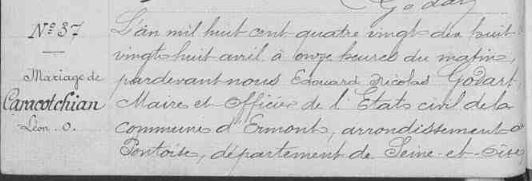 N° 37
Mariage de
Caracotchian
Léon. O.
L'an mil huit cent quatre vingt dix huit
vingt huit avril à onze heures du matin,
pardevant nous Edouard Nicolas Godart,
Maire et Officier de l'Etats civil de la
commune d'Ermont, arrondissement de
Pontoise, département de Seine-et-Oise